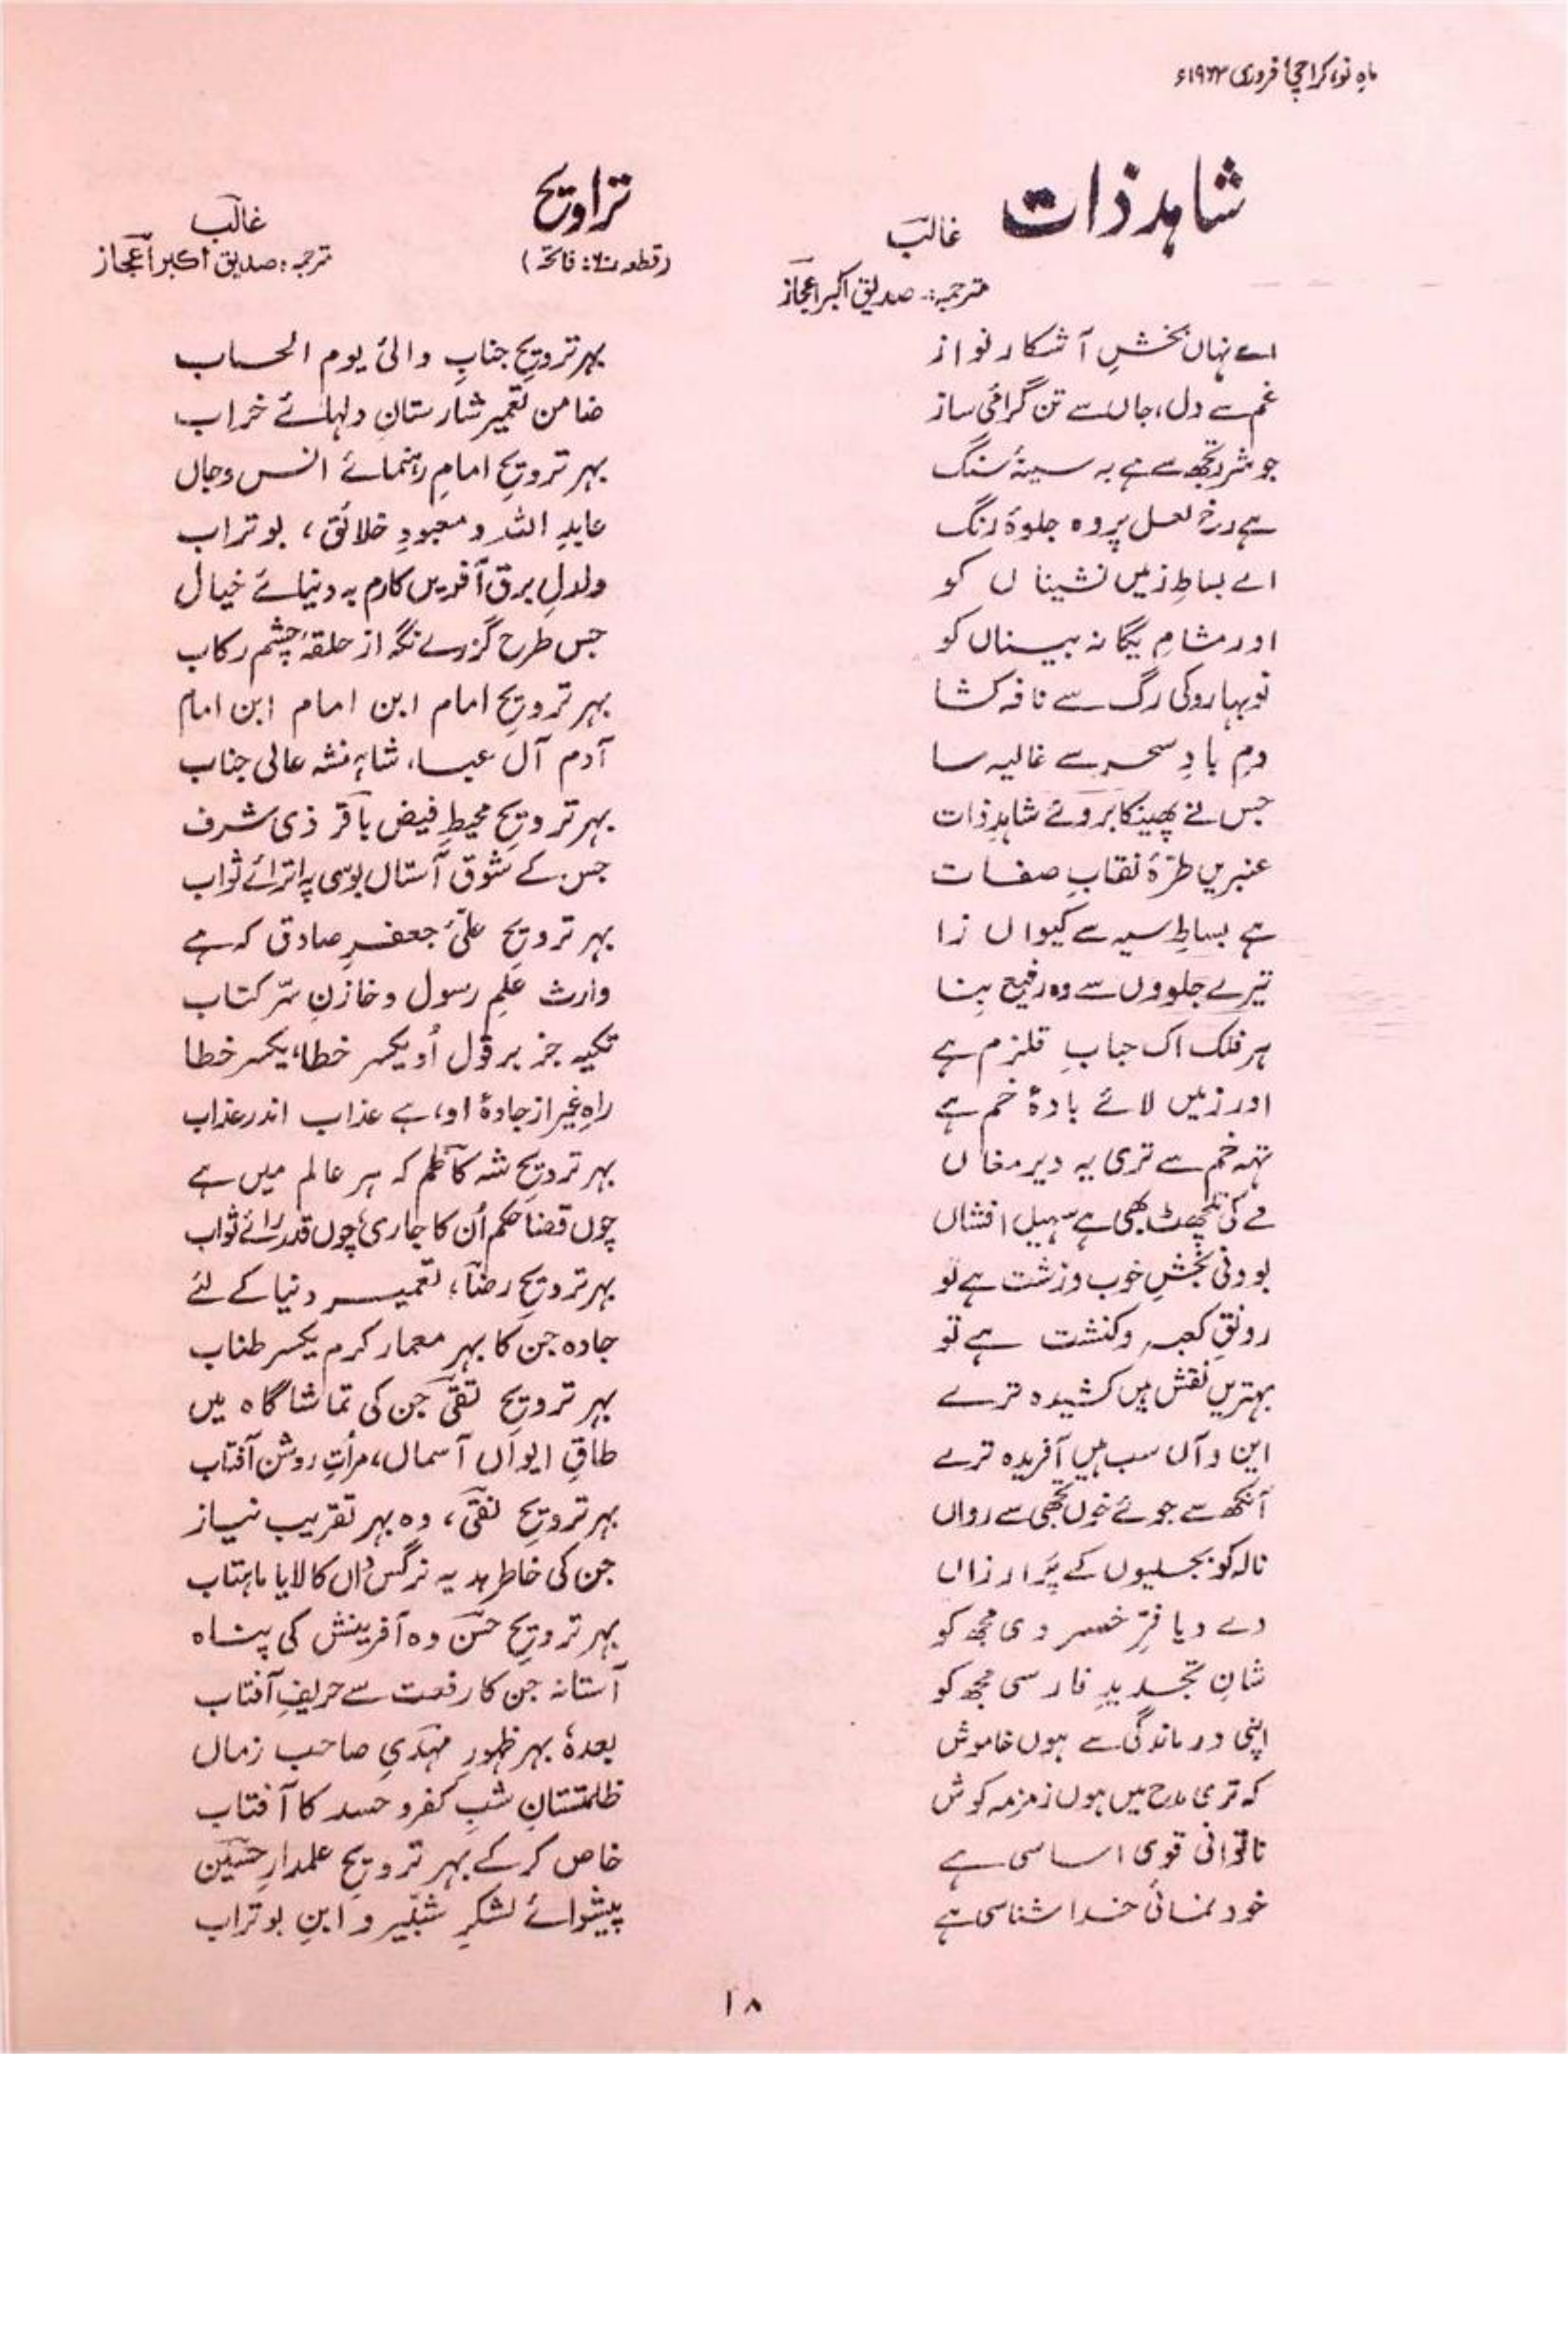 ماہِ نو، کراچی، فروری ۱۹۶۳ء
شاہد ذات
غالب
ترجمہ:۔ صدیق اکبر اعجاز
اے نہاں بخشِ آشکار نواز
غم سے دل، جاں سے تن گرامی ساز
جو شرر تجھ سے ہے بہ سینۂ سنگ
ہے رخِ لعل پر وہ جلوۂ رنگ
اے بساطِ زمیں نشیناں کو
اور مشامِ یگانہ بیناں کو
نوبہارو کی رگ سے نافہ کشا
دمِ بادِ سحر سے غالیہ سا
جس نے پھینکا بروئے شاہدِ ذات
عنبریں طرّۂ نقابِ صفات
ہے بساطِ سیہ سے کیواں زا
تیرے جلووں سے وہ رفیع بنا
ہر فلک اک حبابِ قلزم ہے
اور زمیں لائے بادۂ خم ہے
تہہ خم سے تری یہ دیر مغاں
مے کی تلچھٹ بھی ہے سہیل افشاں
بودنی بخشِ خوب و زشت ہے تو
رونقِ کعبہ و کنشت ہے تو
بہتریں نقش ہیں کشیدہ ترے
این و آں سب ہیں آفریدہ ترے
آنکھ سے جوئے خوں تجھی سے رواں
نالہ کو بجلیوں کے پَر ارزاں
دے دیا فرِّ خسروی مجھ کو
شانِ تجدیدِ فارسی مجھ کو
اپنی درماندگی سے ہوں خاموش
کہ تری مدح میں ہوں زمزمہ کوش
ناتوانی قوی اساسی ہے
خود نمائی خدا شناسی ہے
تراویح
(قطعہ ۶۰: فاتحہ)
غالب
ترجمہ: صدیق اکبر اعجاز
بہرِ ترویحِ جنابِ والئ یوم الحساب
ضامن تعمیرِ شارستانِ دلہائے خراب
بہرِ ترویحِ امامِ رہنمائے انس و جاں
عابدِ اللہ و معبودِ خلائق، بوتراب
دلدلِ برق آفریں کارم بہ دنیائے خیال
جس طرح گزرے نگہ از حلقۂ چشمِ رکاب
بہرِ ترویحِ امام ابن امام ابن امام
آدم آل عبا، شاہنشہ عالی جناب
بہرِ ترویحِ محیطِ فیض باقر ذی شرف
جس کے شوقِ آستاں بوسی پہ اترائے ثواب
بہرِ ترویحِ علیؑ جعفرِ صادق کہ ہے
وارث علمِ رسول و خازنِ سرّ کتاب
تکیہ جز بر قول اُو یکسر خطا، یکسر خطا
راہِ غیر از جادۂ او، ہے عذاب اندر عذاب
بہرِ ترویحِ شہ کاظم کہ ہر عالم میں ہے
چوں قضا حکم اُن کا جاری، چوں قدر رائے ثواب
بہرِ ترویحِ رضا، تعمیر دنیا کے لئے
جادہ جن کا بہرِ معمار کرم یکسر طناب
بہرِ ترویحِ تقی جن کی تماشا گاہ میں
طاقِ ایواں آسماں، مرأتِ روشن آفتاب
بہرِ ترویحِ نقی، وہ بہرِ تقریب نیاز
جن کی خاطر ہدیہ نرگس داں کا لایا ماہتاب
بہرِ ترویحِ حسن وہ آفرینش کی پناہ
آستانہ جن کا رفعت سے حریفِ آفتاب
بعدہٗ بہرِ ظہورِ مہدیِ صاحب زماں
ظلمتستانِ شبِ کفر و حسد کا آفتاب
خاص کر کے بہرِ ترویحِ علمدارِ حسین
پیشوائے لشکرِ شبّیر و ابنِ بوتراب
۱۸